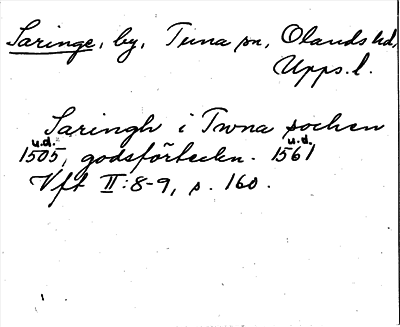 Saringe, by, Tuna sn, Olands hd,
Upps. l.
Saringh i Twna sochen
u.d. u.d.
1505, godsförteckn. 1561
Vft II:8-9, s. 160.